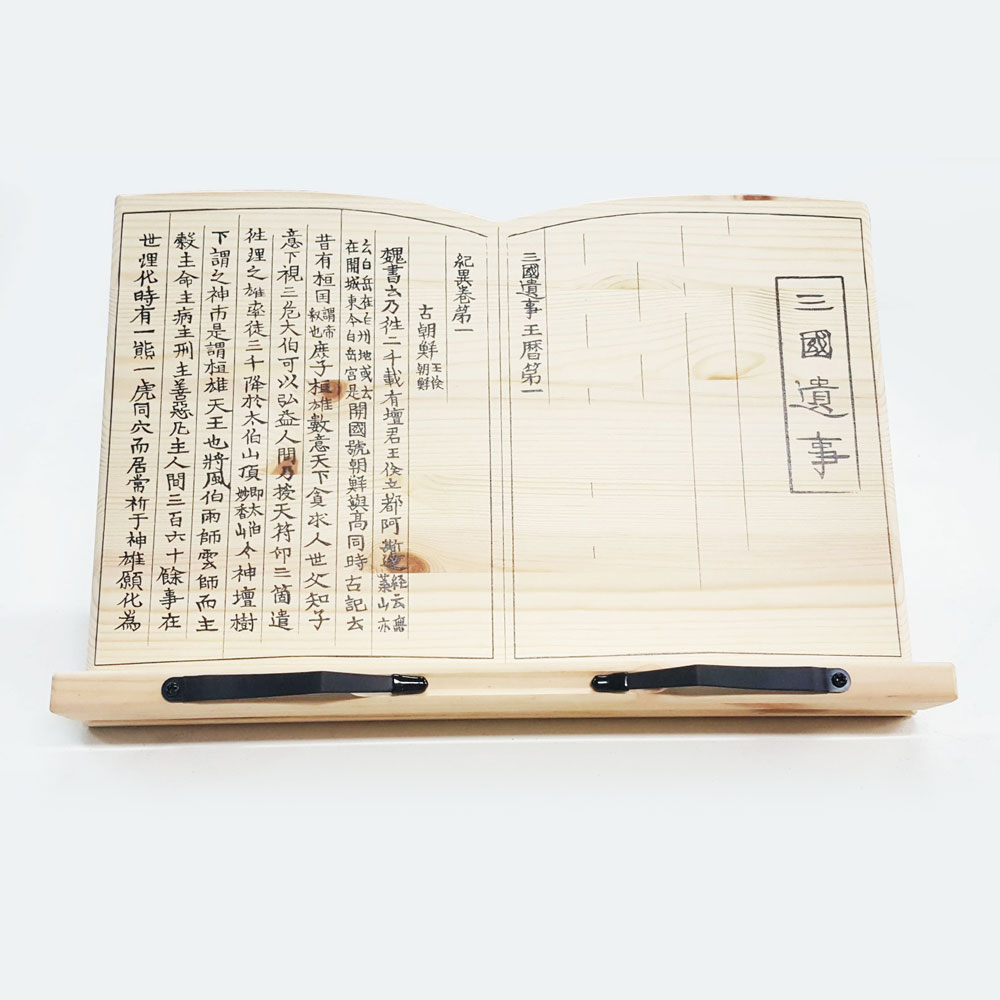 三國遺事
三國遺事王曆第一
紀異卷第一
古朝鮮王倹朝鮮
魏書云乃徃二千載有壇君王倹立都阿斯達経云無葉山亦
云白岳在白州地或云在開城東今白岳宮是開國號朝鮮與高同時古記云
昔有桓囯謂帝釈也庶子桓雄數意天下貪求人世父知子
意下視三危大伯可以弘益人間乃授天符印三箇遣
徃理之雄率徒三千降於太伯山頂即太伯今妙香山神壇樹
下謂之神市是謂桓雄天王也將風伯雨師雲師而主
糓主命主病主刑主善惡凡主人間三百六十餘事在
世理化時有一熊一虎同穴而居常祈于神雄願化為